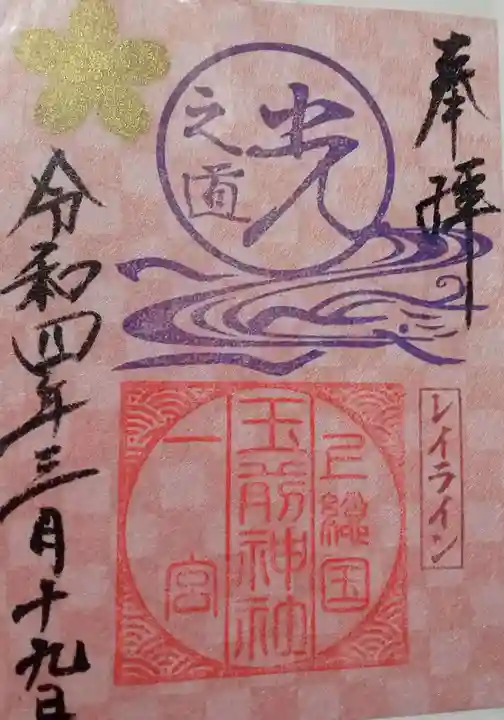 奉拝
光
之道
レイライン
上総国
玉前神社
一宮
令和四年三月十九日